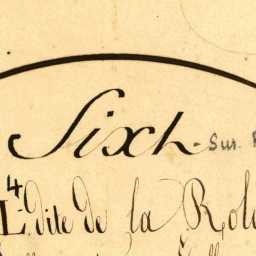 Sixh. Sur.
L4. dite de la Rol